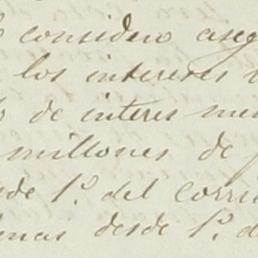 considero aseg
los intereses
de interes men
millones de
de 1º. del corri
mas desde 1º. d